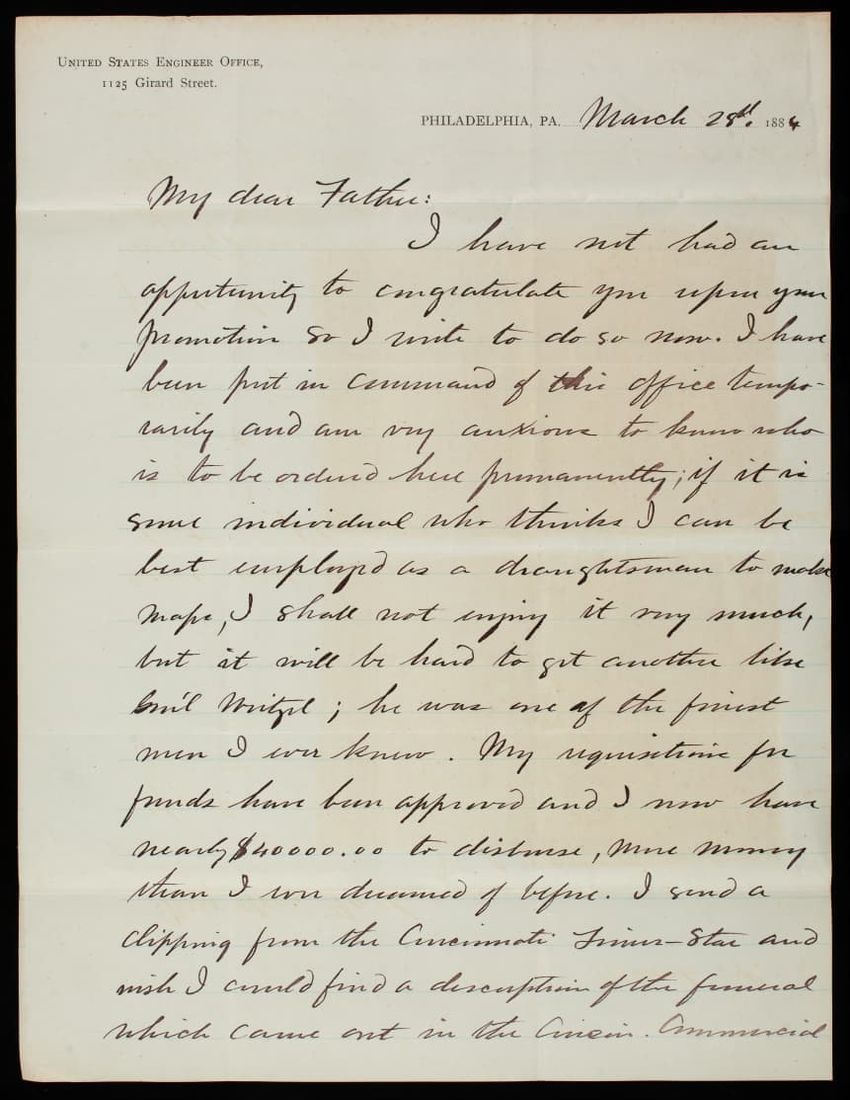 UNITED STATES ENGINEER OFFICE,
1125 Girard Street.
PHILADELPHIA, PA. March 28th. 1884
My dear Father:
I have not had an
opportunity to congratulate you upon your
promotion so I write to do so now. I have
been put in command of this office tempo-
rarily and am very anxious to know who
is to be ordered here permanently; if it is
some individual who thinks I can be
best employed as a draughtsman to make
maps, I shall not enjoy it very much,
but it will be hard to get another like
Gen'l Weitzel; he was one of the finest
men I ever knew. My requisitions for
funds have been approved and I now have
nearly $40000.00 to disburse, more money
than I ever dreamed of before. I send a
clipping from the Cincinnati Times-Star and
wish I could find a description of the funeral
which came out in the Cincin. Commercial